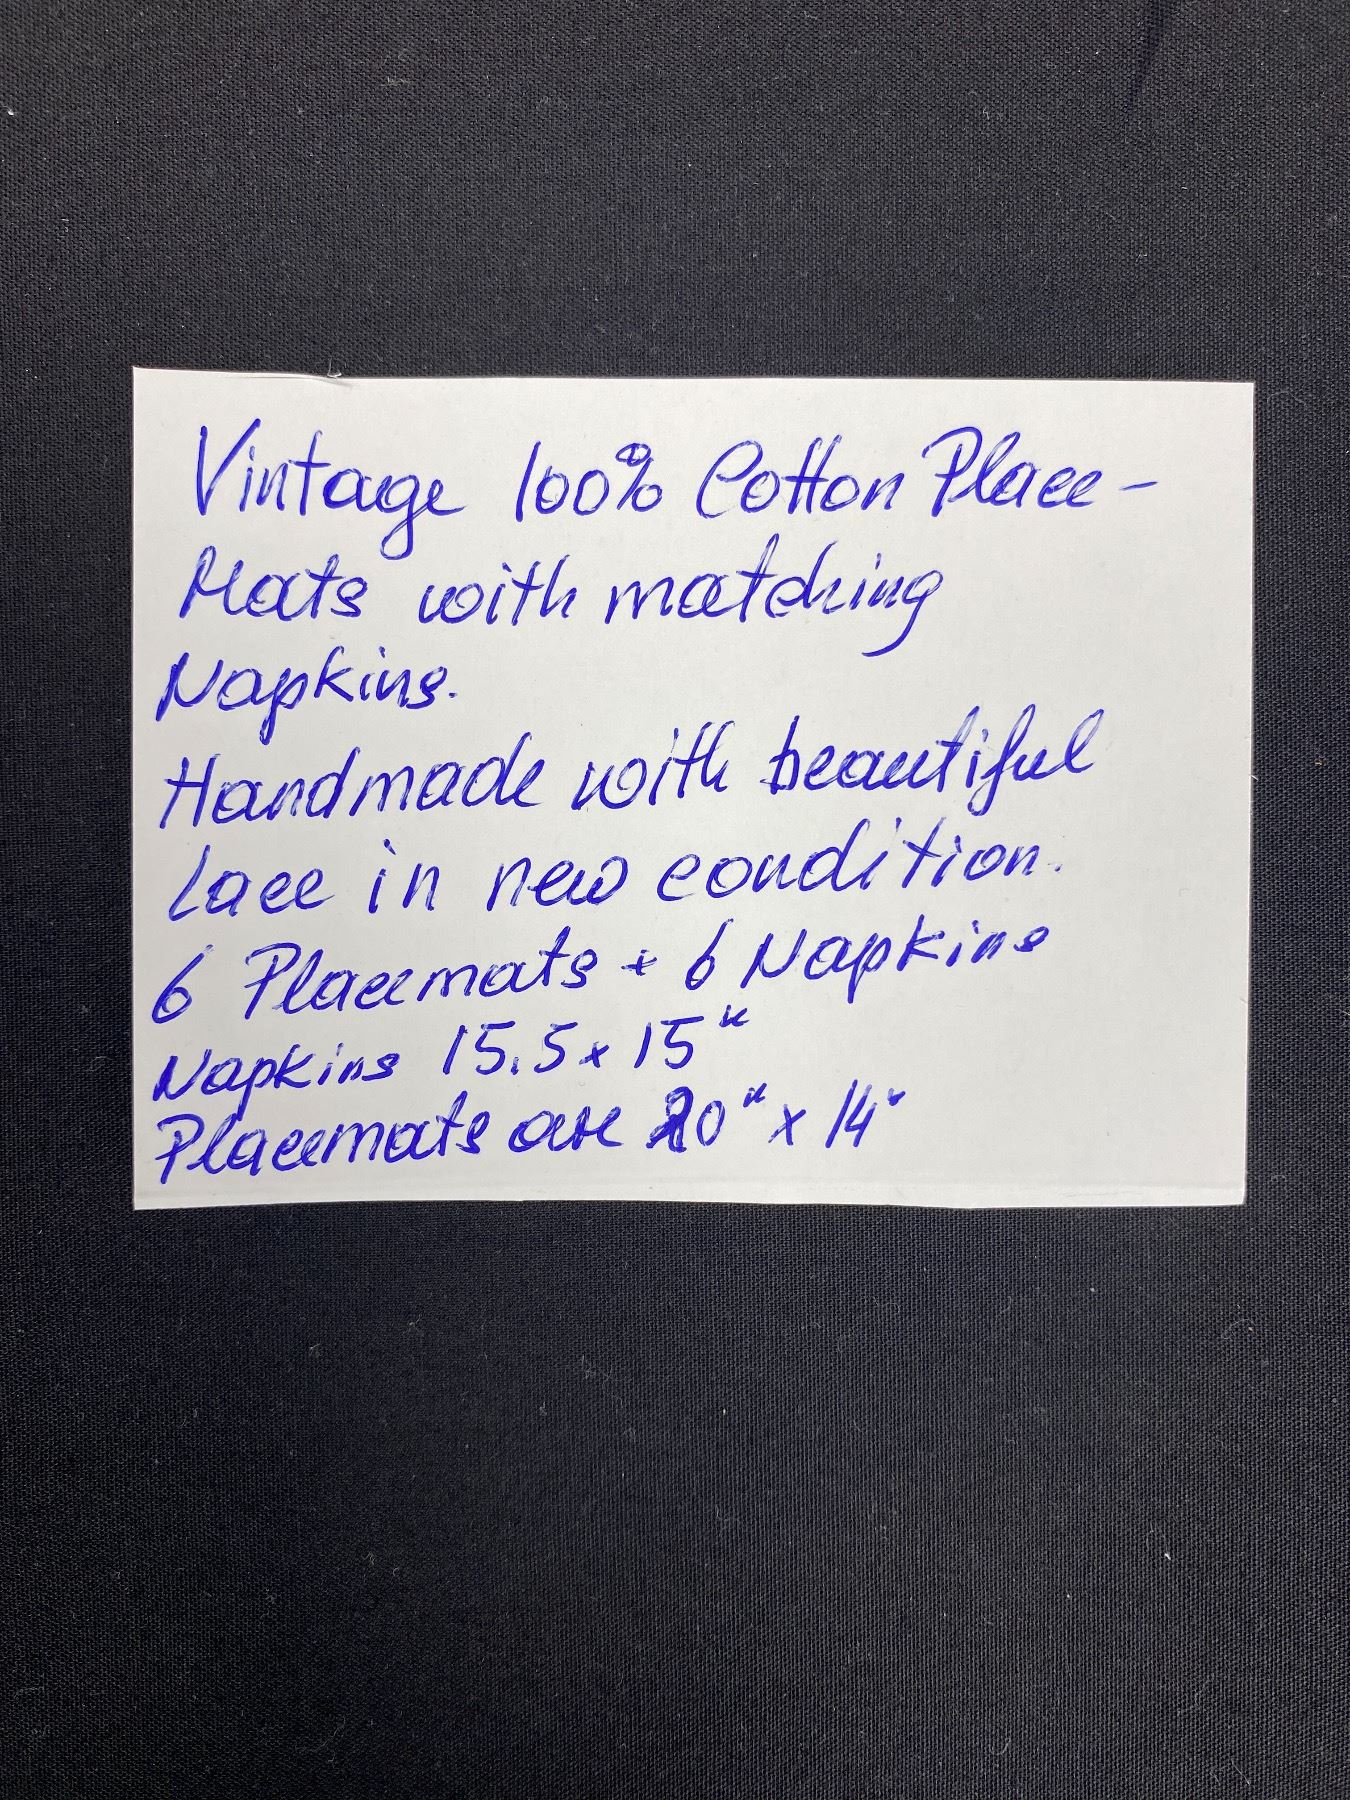 Vintage 100% Cotton Place-
Mats with matching
Napkins.
Handmade with beautiful
Lace in new condition.
6 Placemats + 6 Napkins
Napkins 15.5 x 15"
Placemats are 20" x 14"